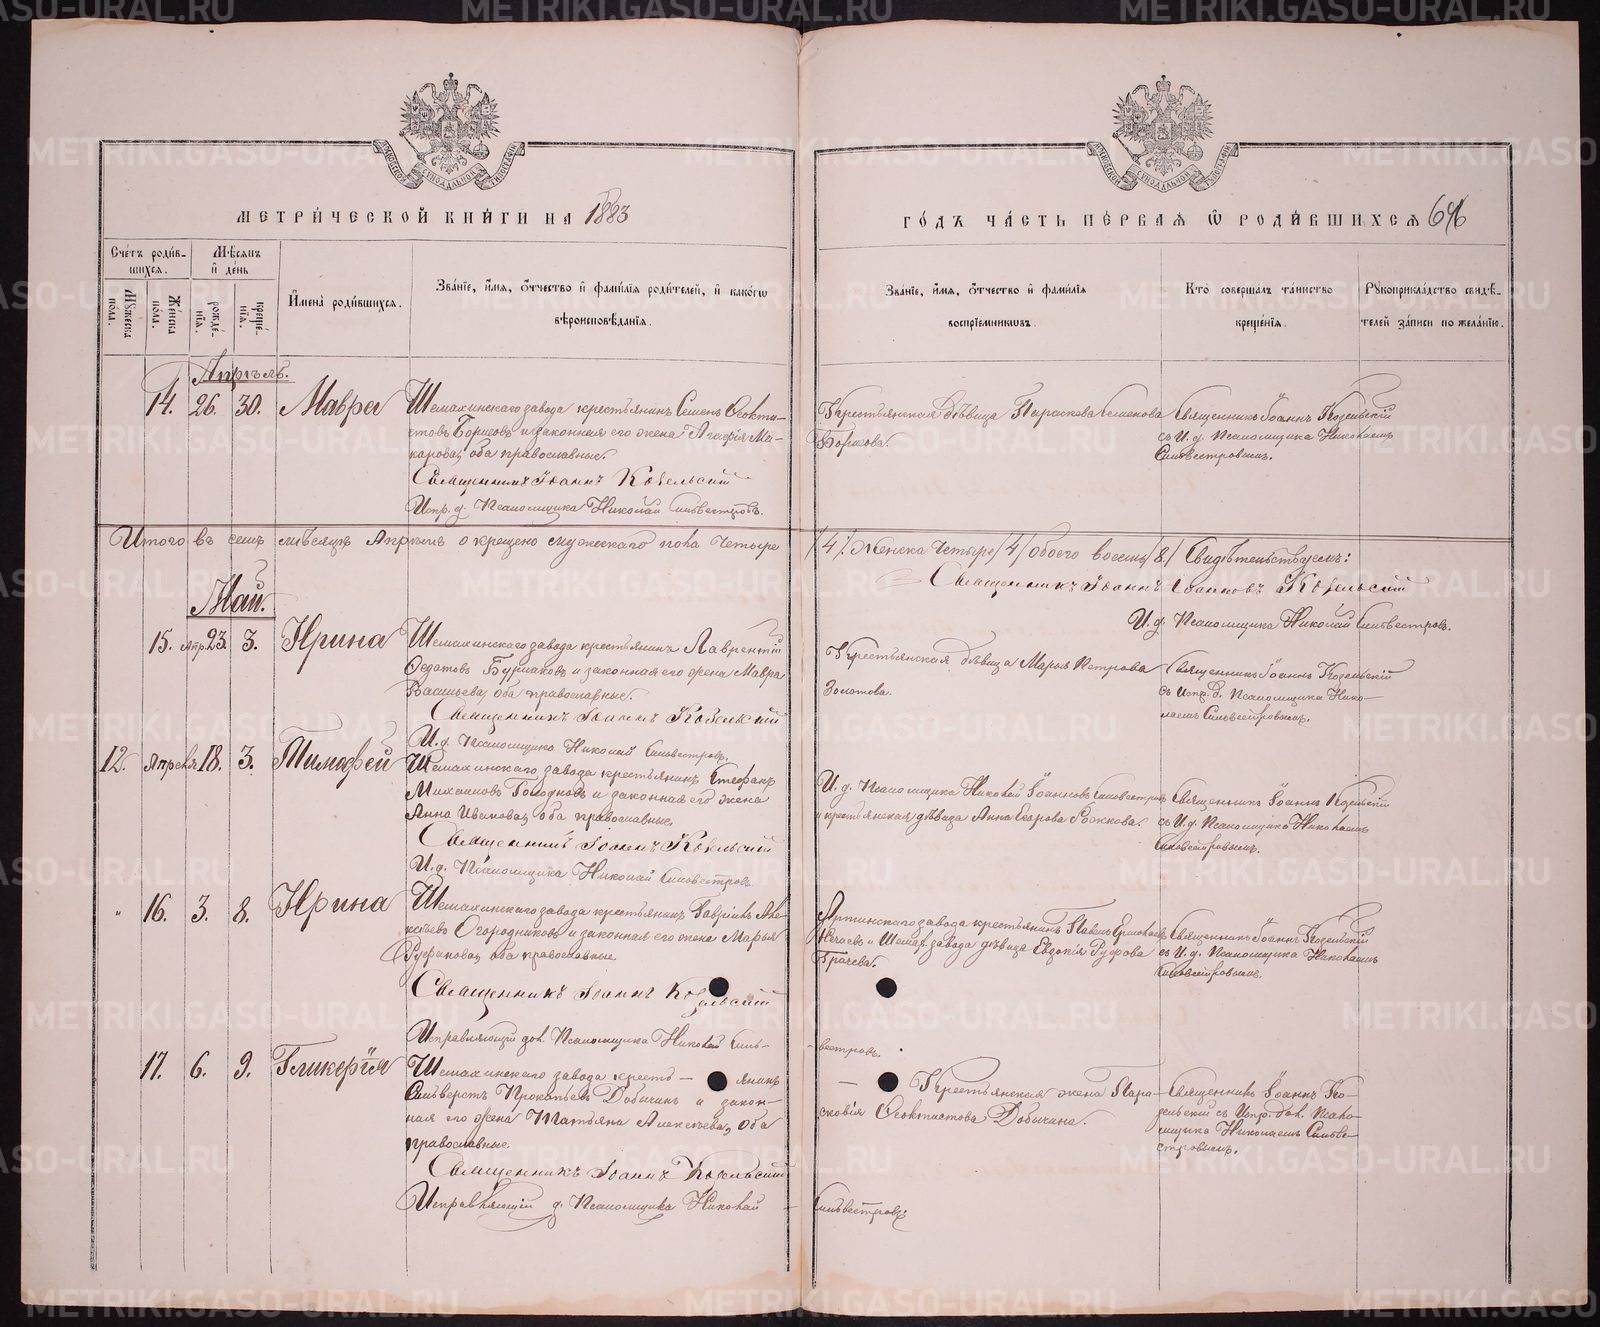 МЕТРИ́ЧЕСКОЙ КНИ́ГИ НА 1883
ГО́ДЪ ЧА́СТЬ ПЕ́РВАЯ Ѡ РОДИ́ВШИХСЯ 646
Сче́тъ роди́в-
шихся.
Мꙋжеска
по́ла.
Же́нска
по́ла.
Мѣ́сяцъ
и҆ де́нь
рожде́-
нїя.
креще́-
нїя.
И҆мена̀ роди́вшихся.
Зва́нїе, и҆́мя, ѻ҆́тчество и҆ фамѝлїя роди́телей, и҆ како́гѡ
вѣроисповѣ́данїя.
Зва́нїе, и҆́мя, ѻ҆́тчество и҆ фамѝлїя
воспрїе́мникѡвъ.
Кто̀ соверша́лъ та́инство
креще́нїя.
Рꙋкоприкла́дство свидѣ́-
телей за́писи по жела́нїю.
Апрѣль.
14. 26. 30. Мавра
Шемахинскаго завода крестьянинъ Семенъ Ѳеокти-
стовъ Борисовъ и законная его жена Агафія Ма-
карова, оба православные.
Священникъ Іоаннъ Козельскій
Испр. д. Псаломщика Николай Сильвестровъ.
Крестьянская дѣвица Параскева Семенова
Борисова.
Священникъ Іоаннъ Козельскій
съ И. д. Псаломщика Николаемъ
Сильвестровымъ.
Итого въ семъ мѣсяцѣ Апрѣлѣ окрещено мужескаго пола четыре
/4/. Женска четыре /4/ обоего восемь /8/ Свидѣтельствуемъ:
Священникъ Іоаннъ Іоанновъ Козельскій
И. д. Псаломщика Николай Сильвестровъ.
Май.
15. Апр. 23. 3. Ирина
Шемахинскаго завода крестьянинъ Лаврентій
Ѳедотовъ Бурмаковъ и законная его жена Мавра
Васильева, оба православные.
Священникъ Іоаннъ Козельскій
И. д. Псаломщика Николай Сильвестровъ.
Крестьянская дѣвица Марья Петрова
Золотова.
Священникъ Іоаннъ Козельскій
съ Испр. д. Псаломщика Нико-
лаемъ Сильвестровымъ.
12. Апрѣля 18. 3. Тимофей
Шемахинскаго завода крестьянинъ Стефанъ
Михаиловъ Голодновъ и законная его жена
Анна Иванова, оба православные.
Священникъ Іоаннъ Козельскій
И. д. Псаломщика Николай Сильвестровъ.
И. д. Псаломщика Николай Іоанновъ Сильвестровъ
и крестьянская дѣвица Анна Егорова Рожкова.
Священникъ Іоаннъ Козельскій
съ И. д. Псаломщика Николаемъ
Сильвестровымъ.
" 16. 3. 8. Ирина
Шемахинскаго завода крестьянинъ Гавріилъ Але-
ксѣевъ Огородниковъ и законная его жена Марья
Руфинова, оба православные.
Священникъ Іоаннъ Козельскій
Исправляющій дол. Псаломщика Николай Силь-
вестровъ.
Артинскаго завода крестьянинъ Павелъ Ермолаевъ
Нечаевъ и Шемах. завода дѣвица Евдокія Руфова
Грачева.
Священникъ Іоаннъ Козельскій
съ И. д. Псаломщика Николаемъ
Сильвестровымъ.
17. 6. 9. Гликерія
Шемахинскаго завода кресть- янинъ
Сильверстъ Прокопьевъ Добычинъ и закон-
ная его жена Татьяна Алексѣева, оба
православные.
Священникъ Іоаннъ Козельскій
Исправляющій д. Псаломщика Николай
Сильвестровъ.
Крестьянская жена Пара-
сковія Ѳеоктистова Добычина.
Священникъ Іоаннъ Ко-
зельскій съ Испр. дол. Псало-
мщика Николаемъ Сильве-
стровымъ.
METRIKI.GASO-URAL.RU